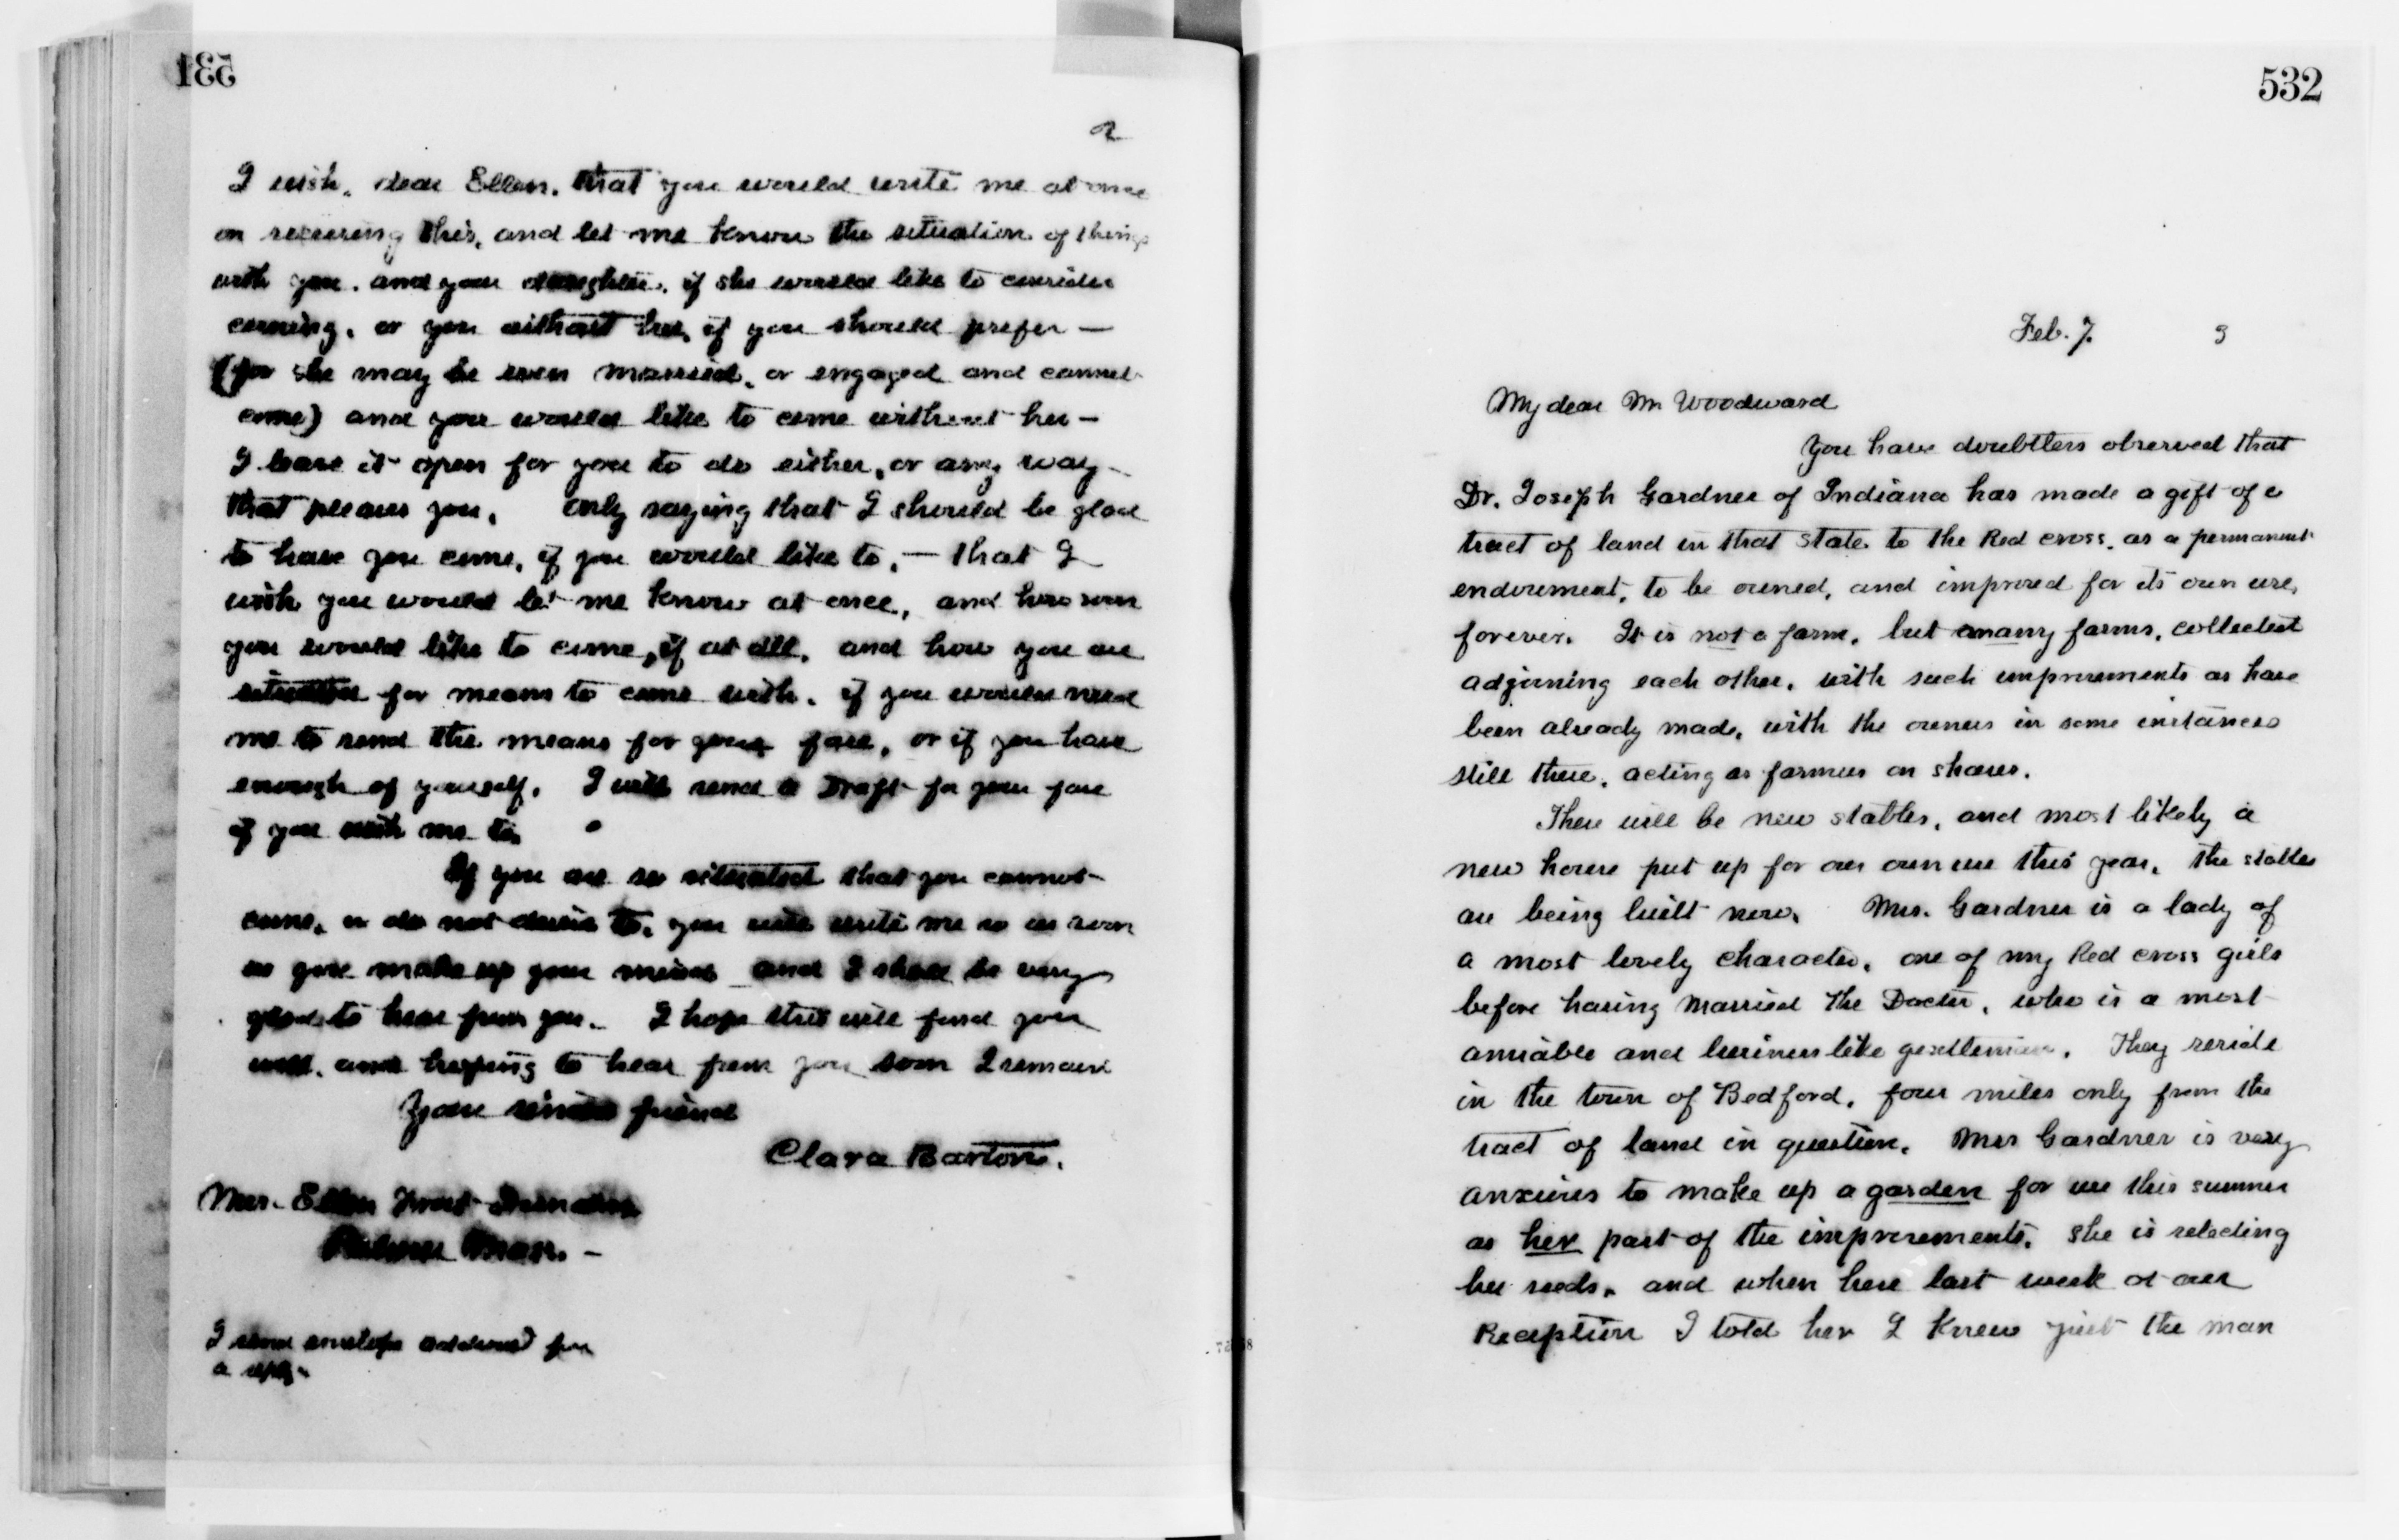 531
2
I wish, dear Ellen, that you would write me at once
on receiving this, and let me know the situation of things
with you, and your daughter, if she would like to consider
coming, or you without her, if you should prefer —
(for she may be even married, or engaged and cannot
come) and you would like to come without her —
I leave it open for you to do either, or any way
that pleases you. Only saying that I should be glad
to have you come, if you would like to, — that I
wish you would let me know at once, and how soon
you would like to come, if at all, and how you are
situated for means to come with, if you would need
me to send the means for your fare, or if you have
enough of yourself. I will send a Draft for your fare
if you wish me to.
If you are so situated that you cannot
come, or do not desire to, you will write me so as soon
as you make up your mind and I shall be very
glad to hear from you. I hope this will find you
well, and hoping to hear from you soon I remain
Your friend
Clara Barton.
Mrs. Ellen
Mass. —
I send envelope addressed for
a reply —
532
Feb. 7. 3
My dear Mr Woodward
You have doubtless observed that
Dr. Joseph Gardner of Indiana has made a gift of a
tract of land in that State to the Red Cross, as a permanent
endowment, to be owned, and improved for its own use,
forever. It is not a farm, but many farms, collected
adjoining each other, with such improvements as have
been already made, with the owners in some instances
still there, acting as farmers on shares.
There will be new stables, and most likely a
new house put up for our own use this year, the stables
are being built now. Mrs. Gardner is a lady of
a most lovely character, one of my Red Cross girls
before having married the Doctor, who is a most
amiable and business like gentleman. They reside
in the town of Bedford, four miles only from the
tract of land in question. Mrs Gardner is very
anxious to make up a garden for us this summer
as her part of the improvements. She is selecting
her seeds, and when here last week at our
Reception I told her I knew just the man